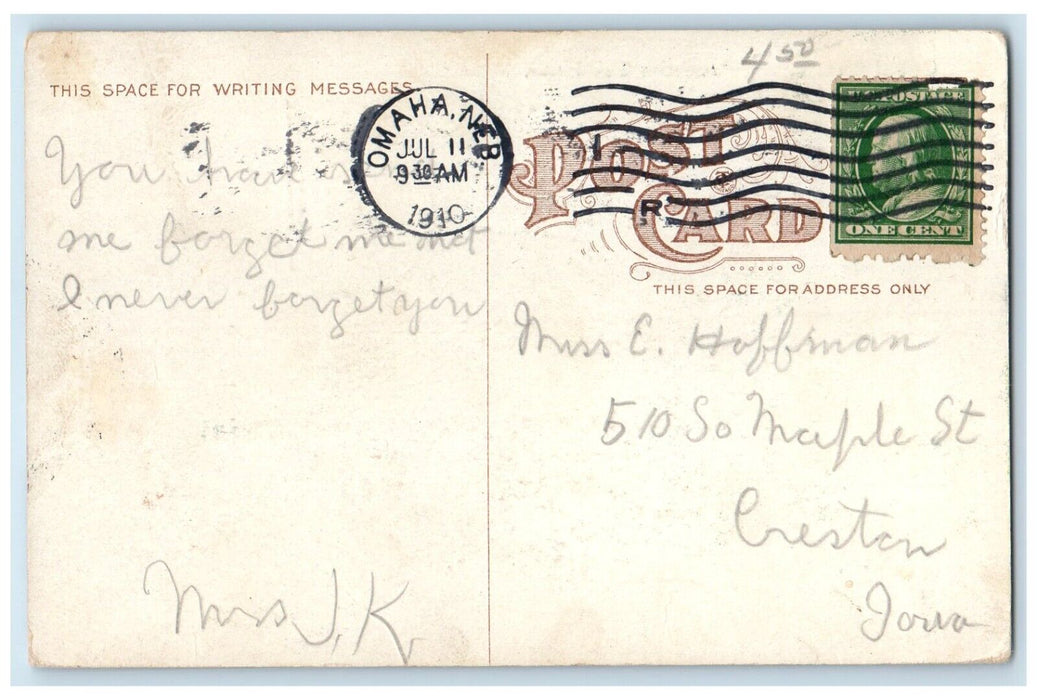 4 50
THIS SPACE FOR WRITING MESSAGES
OMAHA, NEB
JUL 11
9 30 AM
1910
R
U.S. POSTAGE
ONE CENT
POST CARD
THIS SPACE FOR ADDRESS ONLY
You have
me forget me not
I never forget you
Miss J. K.
Miss E. Hoffman
510 So Maple St
Creston
Iowa